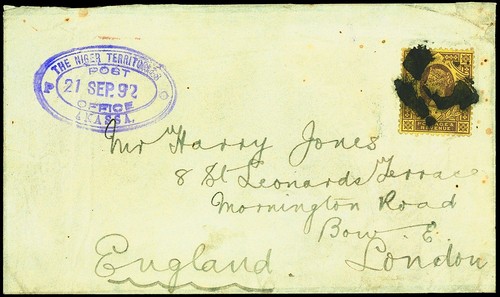 THE NIGER TERRITORIES
POST
21 SEP. 92
OFFICE
AKASSA.
POSTAGE &
REVENUE
Mr Harry Jones
8 St Leonards Terrace
Mornington Road
Bow E.
England. London